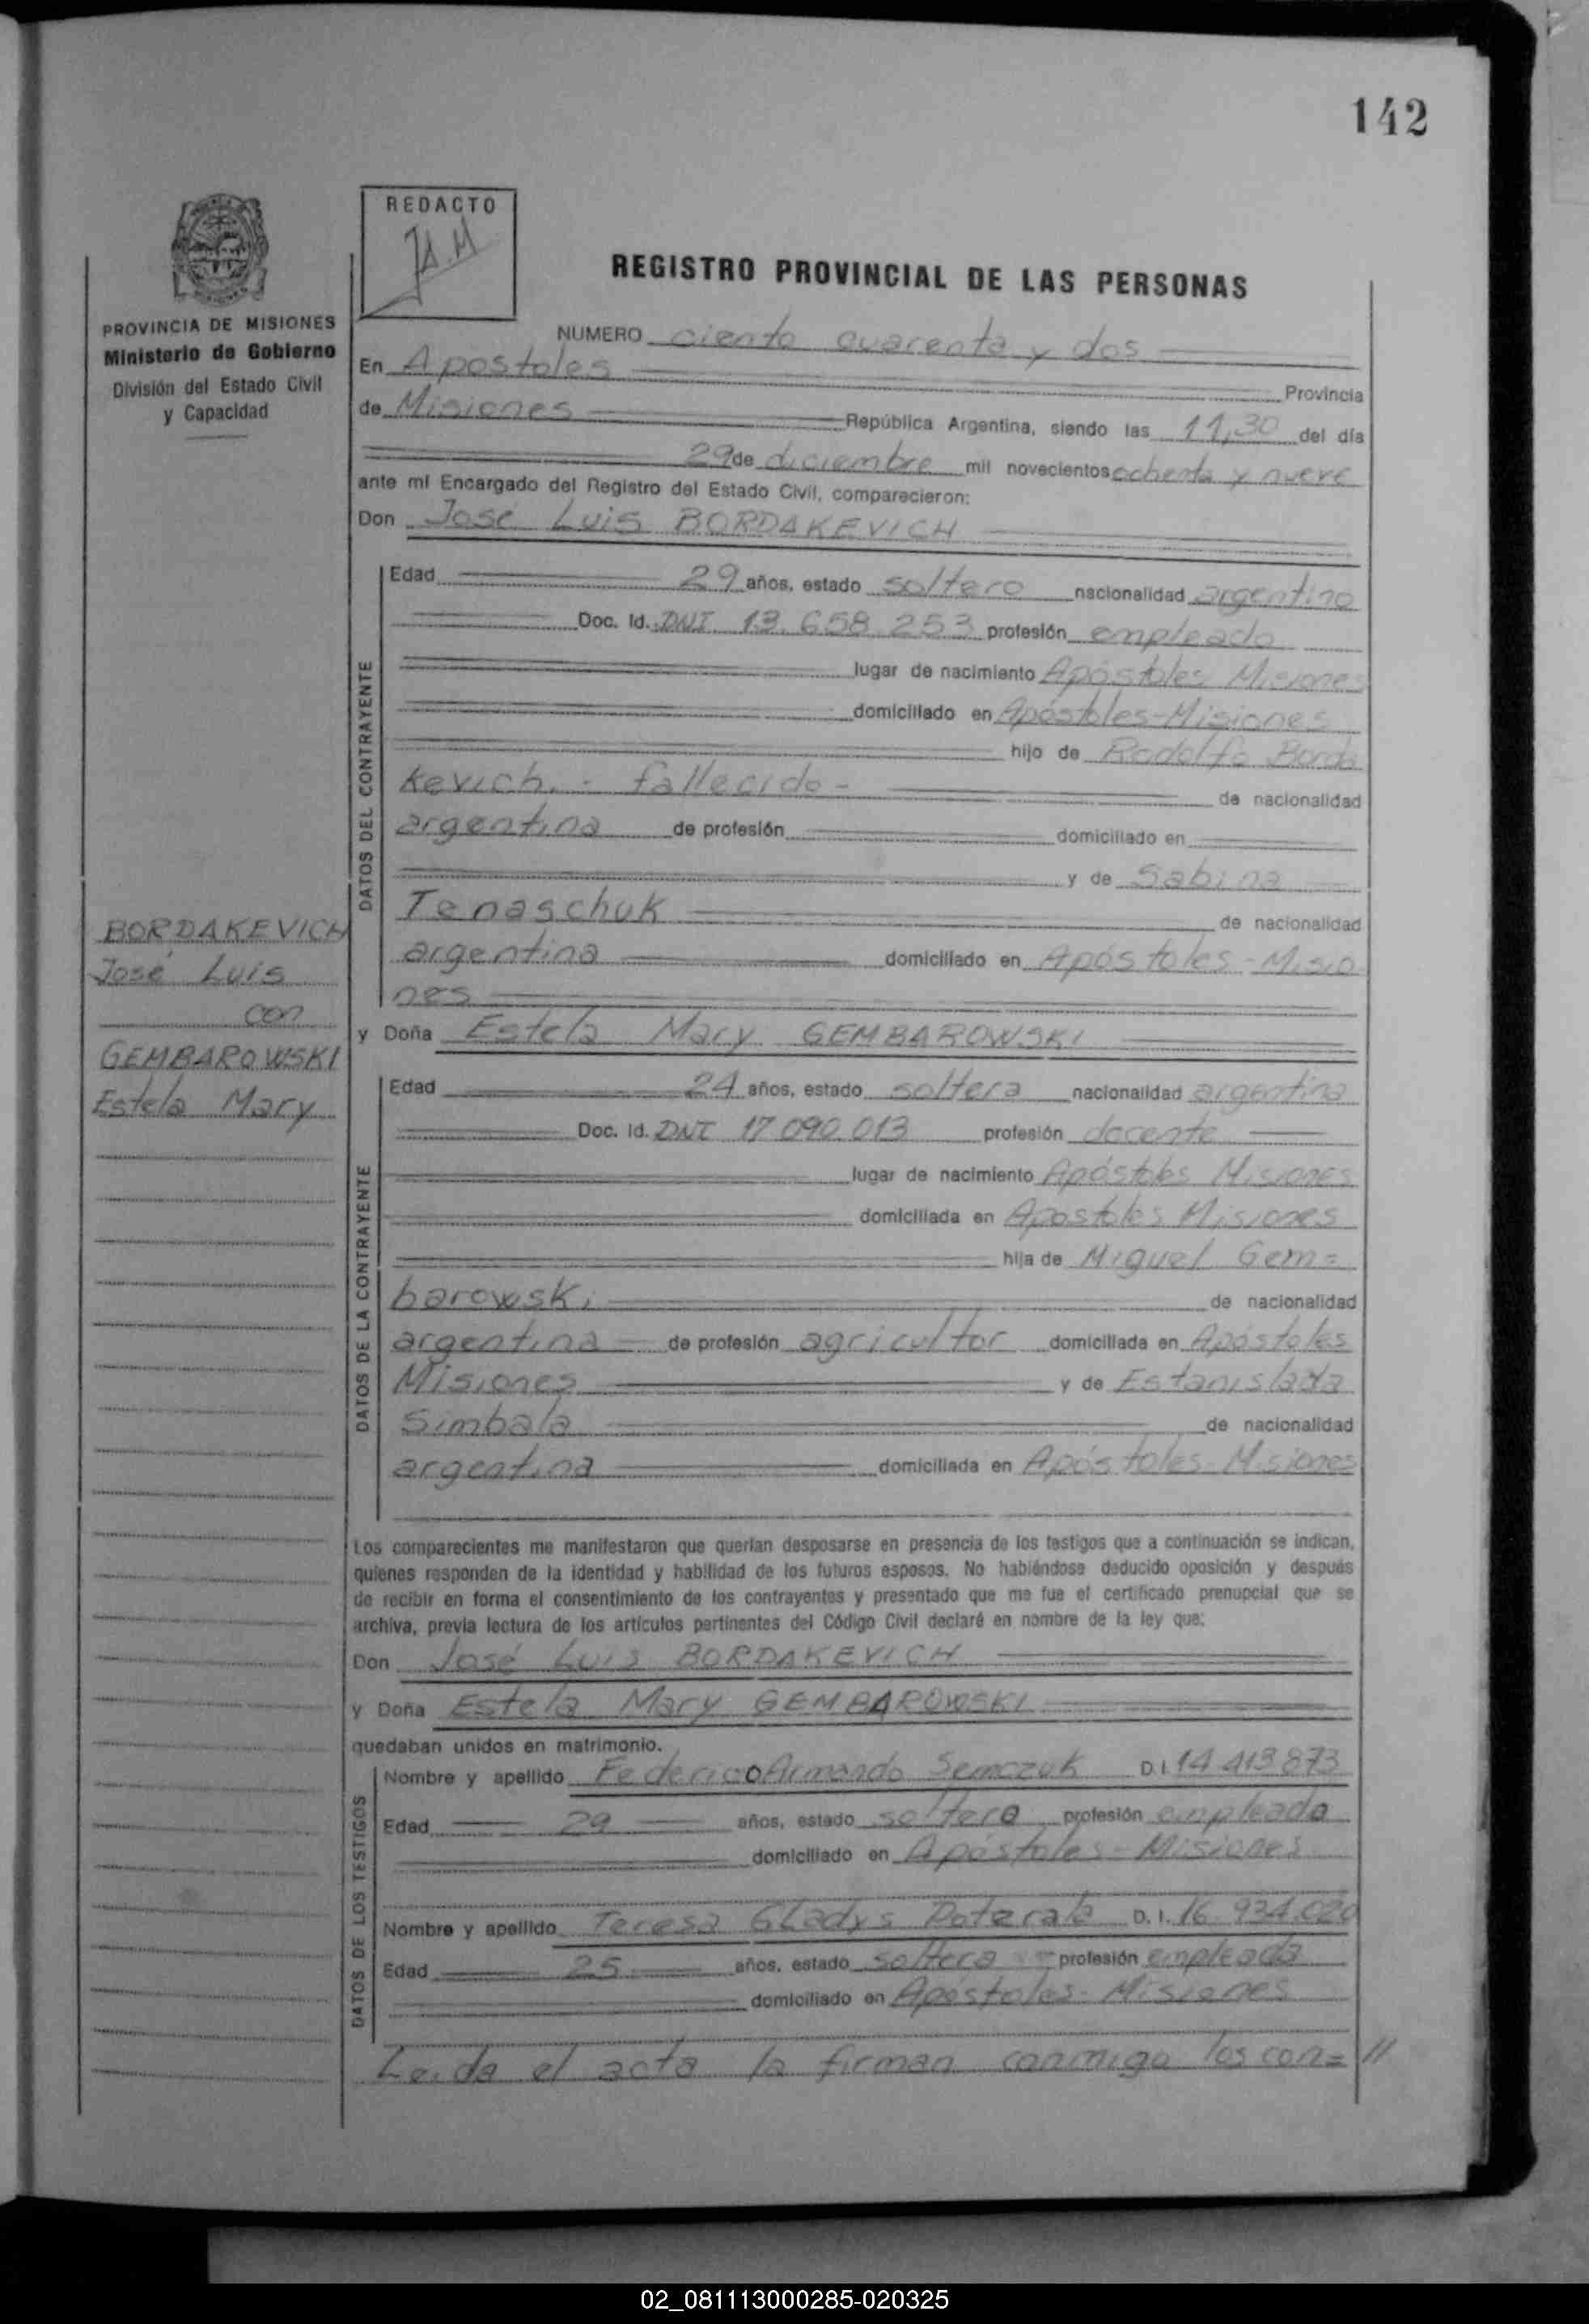 142
REDACTO
J.A.M
REGISTRO PROVINCIAL DE LAS PERSONAS
PROVINCIA DE MISIONES
Ministerio de Gobierno
División del Estado Civil
y Capacidad
NUMERO ciento cuarenta y dos
En Apostoles Provincia
de Misiones República Argentina, siendo las 11,30 del día
29 de diciembre mil novecientos ochenta y nueve
ante mí Encargado del Registro del Estado Civil, comparecieron:
Don José Luis BORDAKEVICH
DATOS DEL CONTRAYENTE
Edad 29 años, estado soltero nacionalidad argentino
Doc. Id. DNI 13.658.253 profesión empleado
lugar de nacimiento Apóstoles Misiones
domiciliado en Apóstoles-Misiones
hijo de Rodolfo Borda
kevich. - fallecido -
de nacionalidad
argentina de profesión domiciliado en
y de Sabina
Tenaschuk de nacionalidad
argentina domiciliado en Apóstoles - Misio
nes
BORDAKEVICH
José Luis
con
GEMBAROWSKI
Estela Mary
y Doña Estela Mary GEMBAROWSKI
DATOS DE LA CONTRAYENTE
Edad 24 años, estado soltera nacionalidad argentina
Doc. Id. DNI 17.090.013 profesión docente
lugar de nacimiento Apóstoles Misiones
domiciliada en Apostoles Misiones
hija de Miguel Gem=
barowski de nacionalidad
argentina de profesión agricultor domiciliada en Apóstoles
Misiones y de Estanislada
Simbala de nacionalidad
argentina domiciliada en Apóstoles - Misiones
Los comparecientes me manifestaron que querían desposarse en presencia de los testigos que a continuación se indican,
quienes responden de la identidad y habilidad de los futuros esposos. No habiéndose deducido oposición y después
de recibir en forma el consentimiento de los contrayentes y presentado que me fue el certificado prenupcial que se
archiva, previa lectura de los artículos pertinentes del Código Civil declaré en nombre de la ley que:
Don José Luis BORDAKEVICH
y Doña Estela Mary GEMBAROWSKI
quedaban unidos en matrimonio.
DATOS DE LOS TESTIGOS
Nombre y apellido Federico Armando Semczuk D.I. 14 413 873
Edad 29 años, estado soltero profesión empleado
domiciliado en Apóstoles - Misiones
Nombre y apellido Teresa Gladys Poterala D.I. 16 934.020
Edad 25 años, estado soltera profesión empleada
domiciliado en Apóstoles - Misiones
Leida el acta la firman conmigo los con= //
02_081113000285-020325